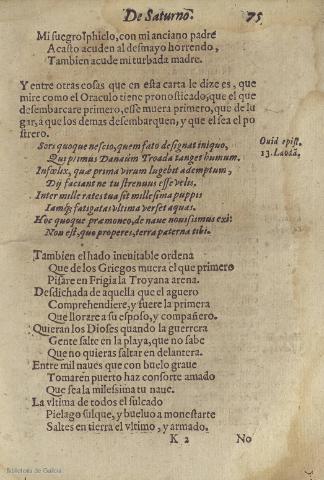 De Saturno. 75
Mi suegro Iphiclo, con mi anciano padre
Acasto acuden al desmayo horrendo,
Tambien acude mi turbada madre.
Y entre otras cosas que en esta carta le dize es, que
mire como el Oraculo tiene pronosticado, que el que
desembarcare primero, esse muera primero, que de lu
gar, à que los demas desembarquen, y que el sea el po
strero.
Sors quoque nescio, quem fato designat iniquo,
Qui primus Danaûm Troada tanget humum.
Infœlix, quæ prima virum lugebit ademptum,
Dij faciant ne tu strenuus esse velis.
Inter mille rates tua sit millesima puppis
Iamq; fatigatas vltima verset aquas.
Hoc quoque præmoneo, de naue nouissimus exi:
Non est, quo properes, terra paterna tibi.
Ouid epist.
13. Laodâ.
Tambien el hado ineuitable ordena
Que de los Griegos muera el que primero
Pisare en Frigia la Troyana arena.
Desdichada de aquella que el aguero
Comprehendiere, y fuere la primera
Que llorare a su esposo, y compañero.
Quieran los Dioses quando la guerrera
Gente salte en la playa, que no sabe
Que no quieras saltar en delantera.
Entre mil naues que con buelo graue
Tomaren puerto haz consorte amado
Que sea la milessima tu naue.
La vltima de todos el sulcado
Pielago sulque, y bueluo a monestarte
Saltes en tierra el vltimo, y armado.
K 2 No
Biblioteca de Galicia